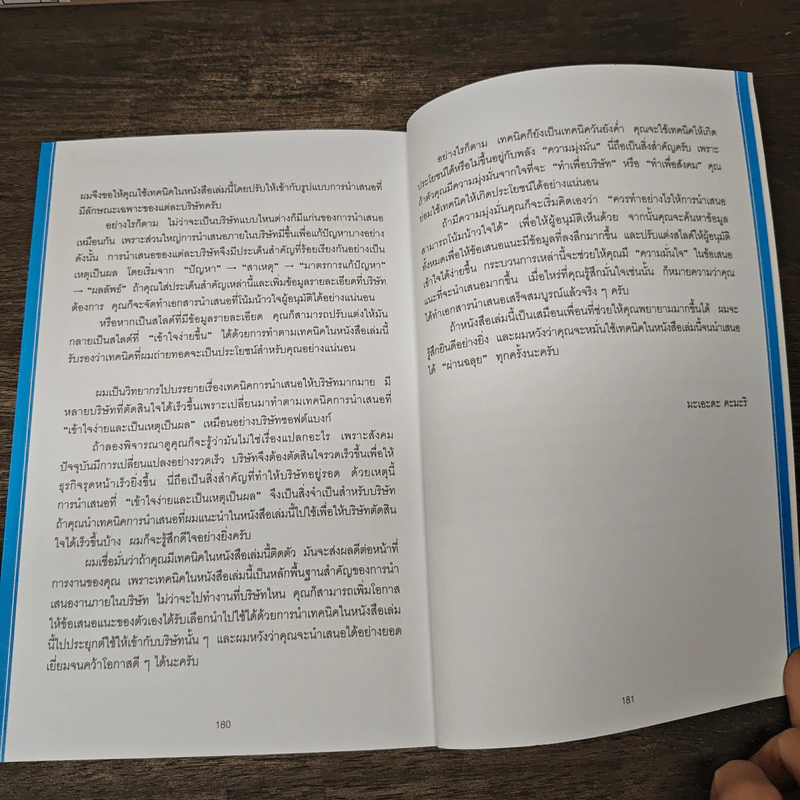 ผมจึงขอให้คุณใช้เทคนิคในหนังสือเล่มนี้โดยปรับให้เข้ากับรูปแบบการนำเสนอที่
มีลักษณะเฉพาะของแต่ละบริษัทครับ
อย่างไรก็ตาม ไม่ว่าจะเป็นบริษัทแบบไหนต่างก็มีแก่นของการนำเสนอ
เหมือนกัน เพราะส่วนใหญ่การนำเสนอภายในบริษัทมีขึ้นเพื่อแก้ปัญหาบางอย่าง
ดังนั้น การนำเสนอของแต่ละบริษัทจึงมีประเด็นสำคัญที่ร้อยเรียงกันอย่างเป็น
เหตุเป็นผล โดยเริ่มจาก “ปัญหา” → “สาเหตุ” → “มาตรการแก้ปัญหา”
→ “ผลลัพธ์” ถ้าคุณใส่ประเด็นสำคัญเหล่านี้และเพิ่มข้อมูลรายละเอียดที่บริษัท
ต้องการ คุณก็จะจัดทำเอกสารนำเสนอที่โน้มน้าวใจผู้อนุมัติได้อย่างแน่นอน
หรือหากเป็นสไลด์ที่มีข้อมูลรายละเอียด คุณก็สามารถปรับแต่งให้มัน
กลายเป็นสไลด์ที่ “เข้าใจง่ายขึ้น” ได้ด้วยการทำตามเทคนิคในหนังสือเล่มนี้
รับรองว่าเทคนิคที่ผมถ่ายทอดจะเป็นประโยชน์สำหรับคุณอย่างแน่นอน
ผมเป็นวิทยากรไปบรรยายเรื่องเทคนิคการนำเสนอให้บริษัทมากมาย มี
หลายบริษัทที่ตัดสินใจได้เร็วขึ้นเพราะเปลี่ยนมาทำตามเทคนิคการนำเสนอที่
“เข้าใจง่ายและเป็นเหตุเป็นผล” เหมือนอย่างบริษัทซอฟต์แบงก์
ถ้าลองพิจารณาดูคุณก็จะรู้ว่ามันไม่ใช่เรื่องแปลกอะไร เพราะสังคม
ปัจจุบันมีการเปลี่ยนแปลงอย่างรวดเร็ว บริษัทจึงต้องตัดสินใจรวดเร็วขึ้นเพื่อให้
ธุรกิจรุดหน้าเร็วยิ่งขึ้น นี่ถือเป็นสิ่งสำคัญที่ทำให้บริษัทอยู่รอด ด้วยเหตุนี้
การนำเสนอที่ “เข้าใจง่ายและเป็นเหตุเป็นผล” จึงเป็นสิ่งจำเป็นสำหรับบริษัท
ถ้าคุณนำเทคนิคการนำเสนอที่ผมแนะนำในหนังสือเล่มนี้ไปใช้เพื่อให้บริษัทตัดสิน
ใจได้เร็วขึ้นบ้าง ผมก็จะรู้สึกดีใจอย่างยิ่งครับ
ผมเชื่อมั่นว่าถ้าคุณมีเทคนิคในหนังสือเล่มนี้ติดตัว มันจะส่งผลดีต่อหน้าที่
การงานของคุณ เพราะเทคนิคในหนังสือเล่มนี้เป็นหลักพื้นฐานสำคัญของการนำ
เสนองานภายในบริษัท ไม่ว่าจะไปทำงานที่บริษัทไหน คุณก็สามารถเพิ่มโอกาส
ให้ข้อเสนอแนะของตัวเองได้รับเลือกนำไปใช้ได้ด้วยการนำเทคนิคในหนังสือเล่ม
นี้ไปประยุกต์ใช้ให้เข้ากับบริษัทนั้น ๆ และผมหวังว่าคุณจะนำเสนอได้อย่างยอด
เยี่ยมจนคว้าโอกาสดี ๆ ได้นะครับ
180
อย่างไรก็ตาม เทคนิคก็ยังเป็นเทคนิควันยังค่ำ คุณจะใช้เทคนิคให้เกิด
ประโยชน์ได้หรือไม่ขึ้นอยู่กับพลัง “ความมุ่งมั่น” นี่ถือเป็นสิ่งสำคัญครับ เพราะ
ถ้าตัวคุณมีความมุ่งมั่นจากใจที่จะ “ทำเพื่อบริษัท” หรือ “ทำเพื่อสังคม” คุณ
ย่อมใช้เทคนิคให้เกิดประโยชน์ได้อย่างแน่นอน
ถ้ามีความมุ่งมั่นคุณก็จะเริ่มคิดเองว่า “ควรทำอย่างไรให้การนำเสนอ
สามารถโน้มน้าวใจได้” เพื่อให้ผู้อนุมัติเห็นด้วย จากนั้นคุณจะค้นหาข้อมูล
ทั้งหมดเพื่อให้ข้อเสนอแนะมีข้อมูลที่ลงลึกมากขึ้น และปรับแต่งสไลด์ให้ผู้อนุมัติ
เข้าใจได้ง่ายขึ้น กระบวนการเหล่านี้จะช่วยให้คุณมี “ความมั่นใจ” ในข้อเสนอ
แนะที่จะนำเสนอมากขึ้น เมื่อไหร่ที่คุณรู้สึกมั่นใจเช่นนั้น ก็หมายความว่าคุณ
ได้ทำเอกสารนำเสนอเสร็จสมบูรณ์แล้วจริง ๆ ครับ
ถ้าหนังสือเล่มนี้เป็นเสมือนเพื่อนที่ช่วยให้คุณพยายามมากขึ้นได้ ผมจะ
รู้สึกยินดีอย่างยิ่ง และผมหวังว่าคุณจะหมั่นใช้เทคนิคในหนังสือเล่มนี้จนนำเสนอ
ได้ “ผ่านฉลุย” ทุกครั้งนะครับ
มะเอะดะ คะมะริ
181